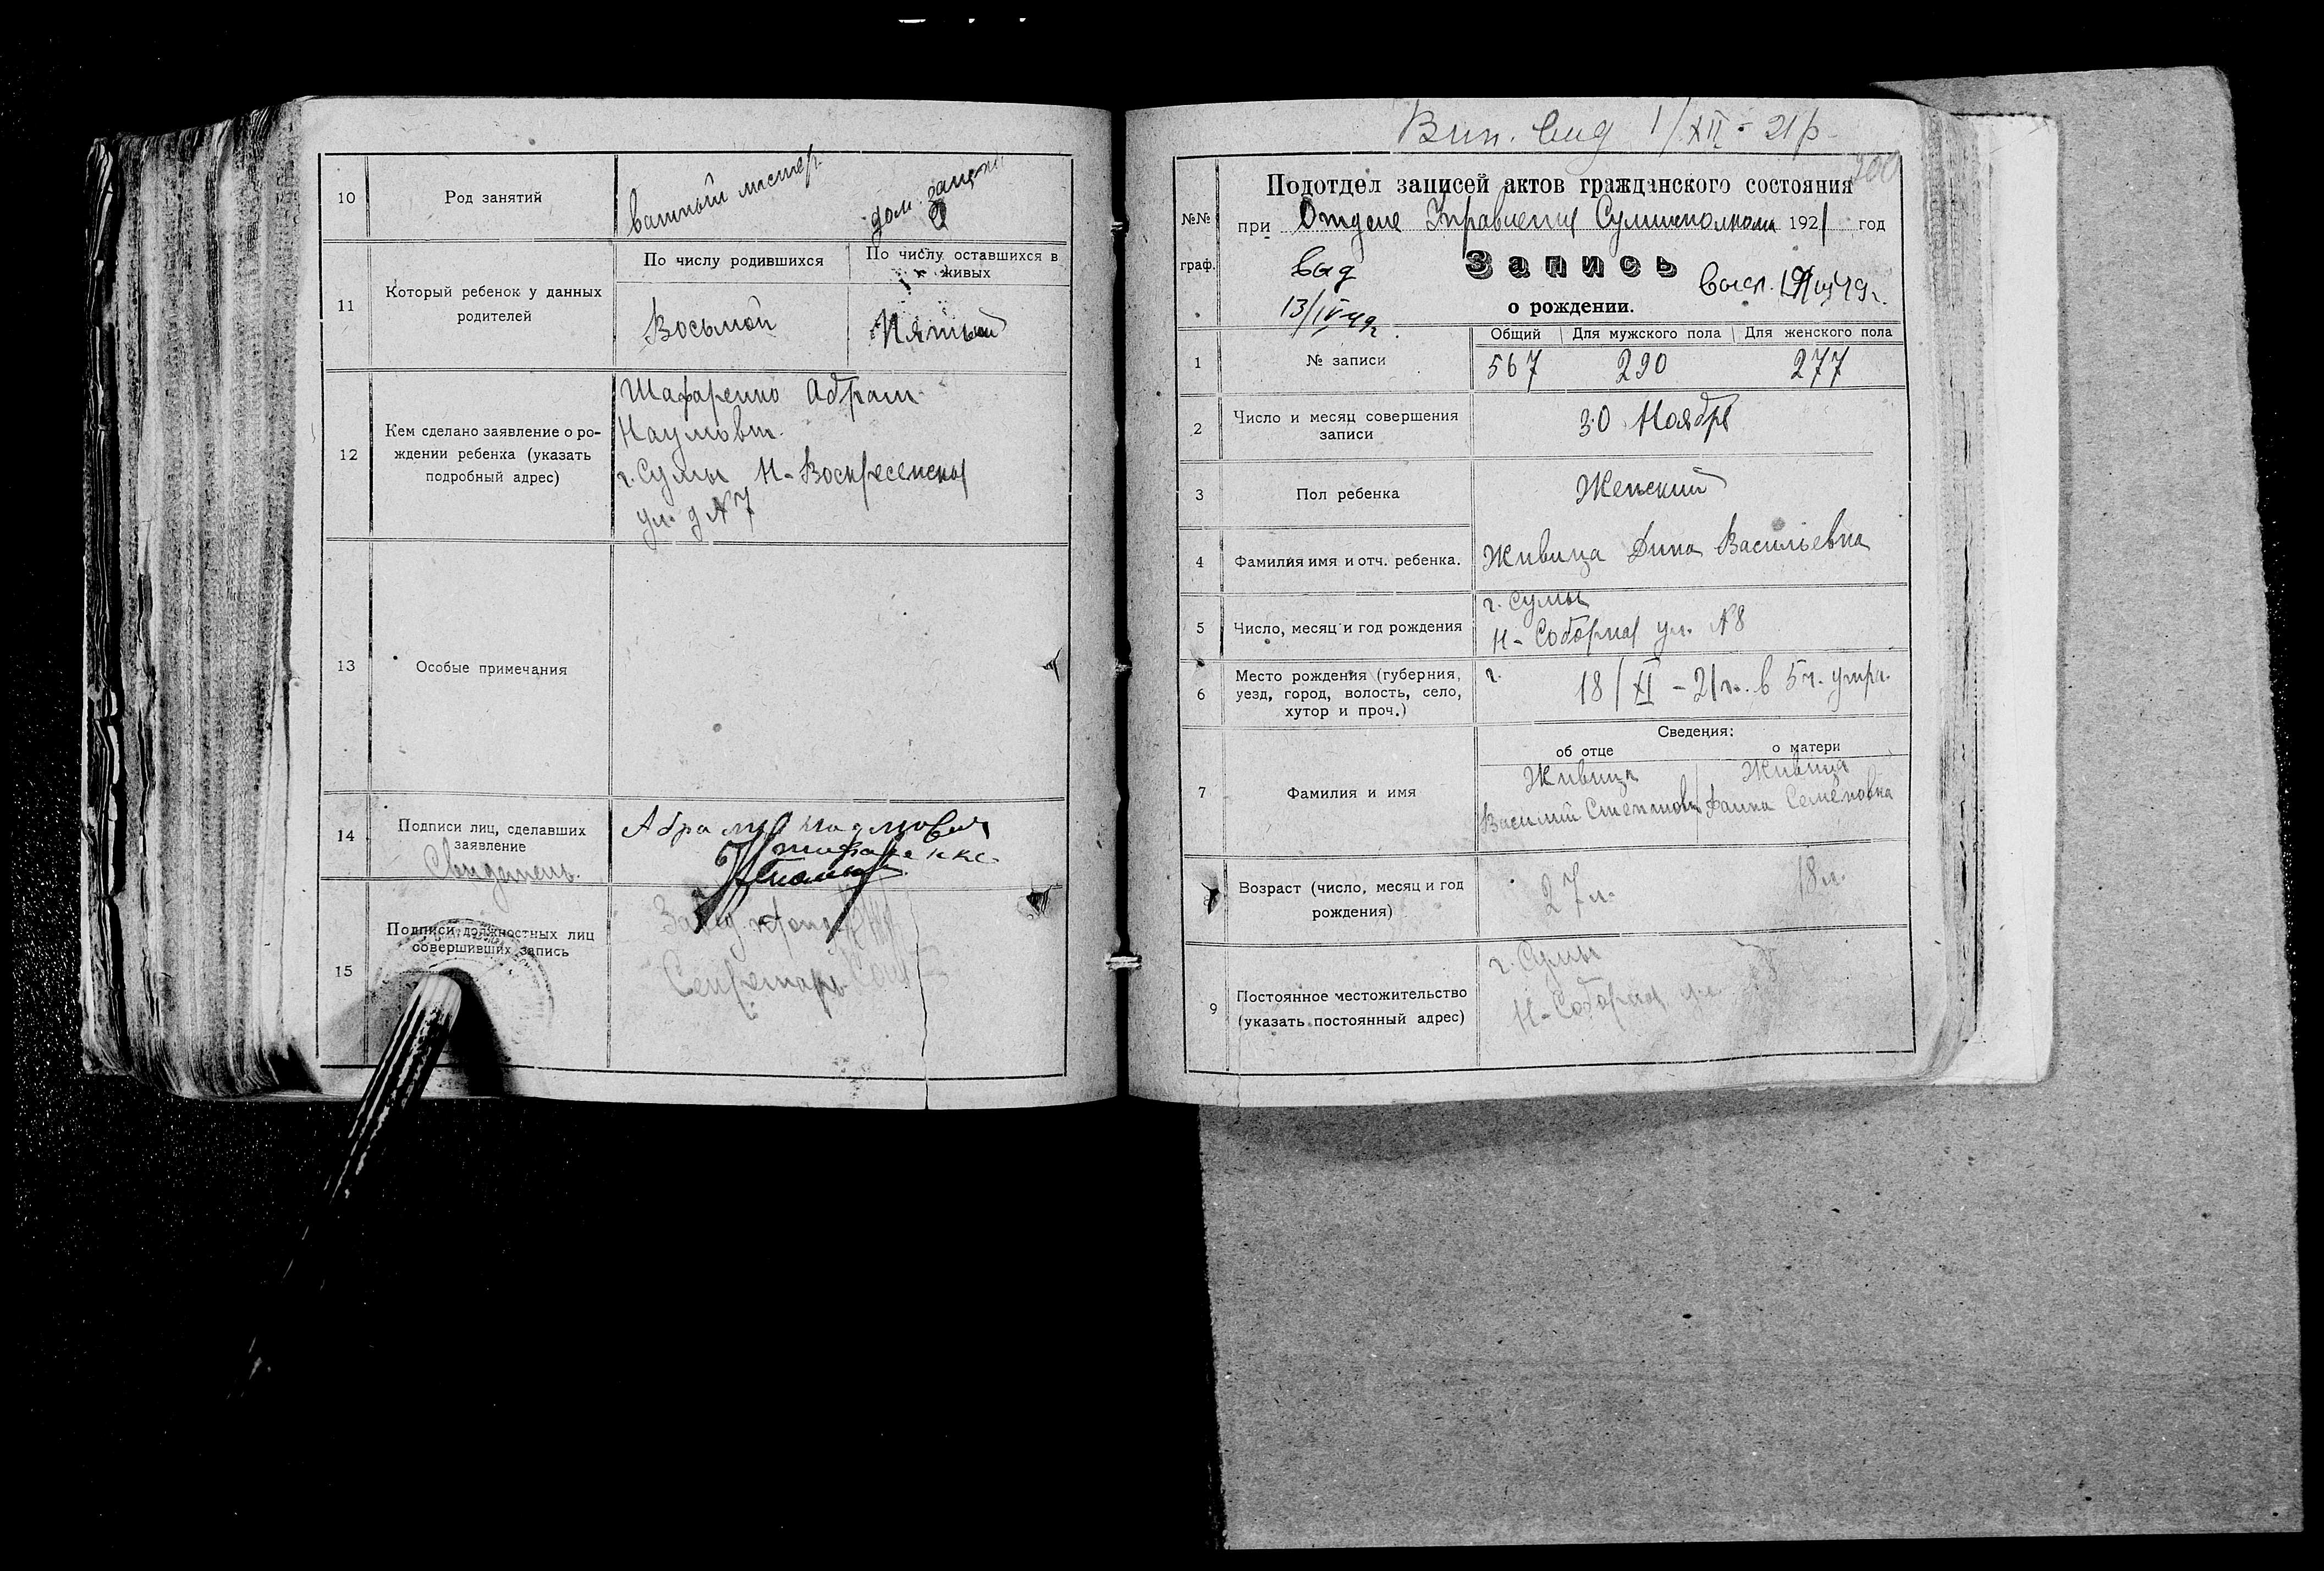 10
Род занятий
ватный мастер.
дом. занят.
11
Который ребенок у данных
родителей
По числу родившихся
По числу оставшихся в
живых
Восьмой
Пятый
12
Кем сделано заявление о ро-
ждении ребенка (указать
подробный адрес)
Шафаренко Абрам
Наумович.
г. Сумы Н-Воскресенская
ул. д №7
13
Особые примечания
14
Подписи лиц, сделавших
заявление
Свидетель.
Абрам Наумович
Шафаренко.
15
Подписи должностных лиц
совершивших запись
Завед.
Секретарь
Вип. вид 1/XII - 21 р.
200
Подотдел записей актов гражданского состояния
№№
граф.
при Отделе Управления Сумисполкома 1921 год
Запись
о рождении.
вид
13/IV 49г.
1
№ записи
Общий
Для мужского пола
Для женского пола
567
290
277
2
Число и месяц совершения
записи
30 Ноября
3
Пол ребенка
Женский
4
Фамилия имя и отч. ребенка.
Живица Дина Васильевна
5
Число, месяц и год рождения
г. Сумы
Н-Соборная ул. №8
6
Место рождения (губерния,
уезд, город, волость, село,
хутор и проч.)
г.
18/XI - 21 г. в 5 ч. утра.
7
Фамилия и имя
Сведения:
об отце
о матери
Живица
Василий Степанович
Живица
Фаина Семёновна
Возраст (число, месяц и год
рождения)
27 л.
18 л.
9
Постоянное местожительство
(указать постоянный адрес)
г. Сумы
Н-Соборная ул. 8